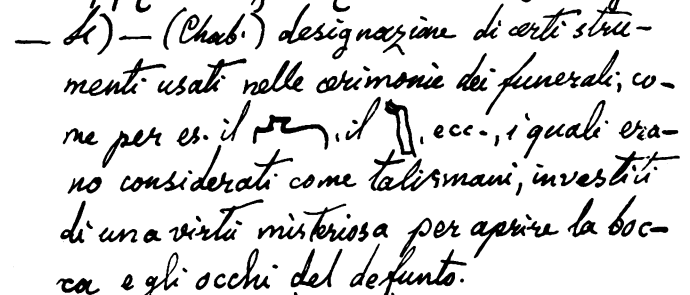 — It) — (Chab.) designazione di certi stru-
menti usati nelle cerimonie dei funerali, co-
me per es. il , il , ecc., i quali era-
no considerati come talismani, investiti
di una virtù misteriosa per aprire la boc-
ca e gli occhi del defunto.